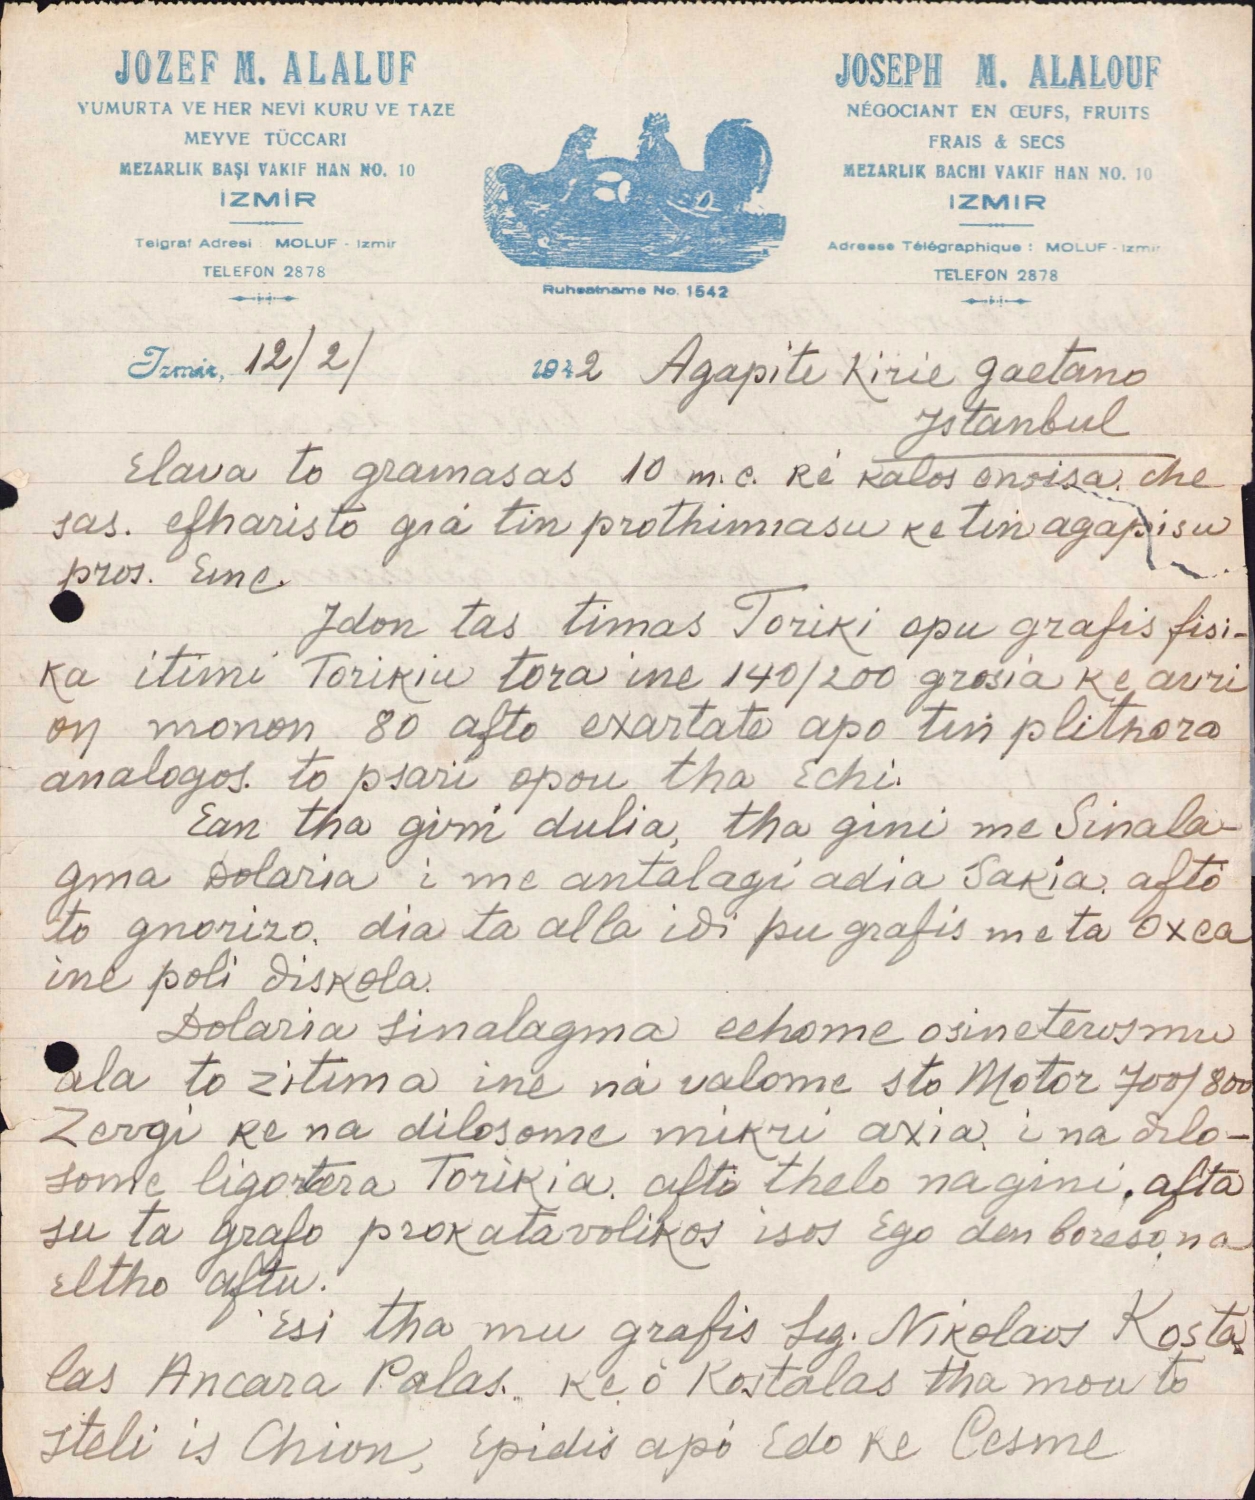 JOZEF M. ALALUF
YUMURTA VE HER NEVİ KURU VE TAZE
MEYVE TÜCCARI
MEZARLIK BAŞI VAKIF HAN NO. 10
İZMİR
Telgraf Adresi : MOLUF - Izmir
TELEFON 2878
JOSEPH M. ALALOUF
NÉGOCIANT EN ŒUFS, FRUITS
FRAIS & SECS
MEZARLIK BACHI VAKIF HAN NO. 10
IZMIR
Adresse Télégraphique : MOLUF - Izmir
TELEFON 2878
Ruhsatname No. 1542
Izmir, 12/2/ 1942 Agapite Kirie Gaetano
Istanbul
Elava to gramasas 10 m.c. ke kalos enoisa. che
sas. efharisto giá tin prothimiasu ke tin agapisu
pros. Eme.
Idon tas timas Toriki opu grafis fisi-
ka itimi Torikiu tora ine 140/200 grosia ke avri
on monon 80 afto exartate apo tin plithora
analogos. to psari opou tha Echi.
Ean tha gini dulia, tha gini me Sinala-
gma Dolaria i me antalagi adia Sakia. afto
to gnorizo. dia ta alla idi pu grafis me ta Oxea
ine poli diskola.
Dolaria sinalagma eehome osineterosmu
ala to zitima ine ná valome sto Motor 700/800
Zevgi ke na dilosome mikri axia. i na dilo-
some ligortera Torikia. afto thelo nagini. afta
su ta grafo prokatavolikos isos Ego den boreso na
eltho aftu.
Esi tha mu grafis Sig. Nikolaos Kosta
las Ancara Palas. ke o Kostalas tha mou to
steli is Chion, Epidis apó Edo ke Cesme